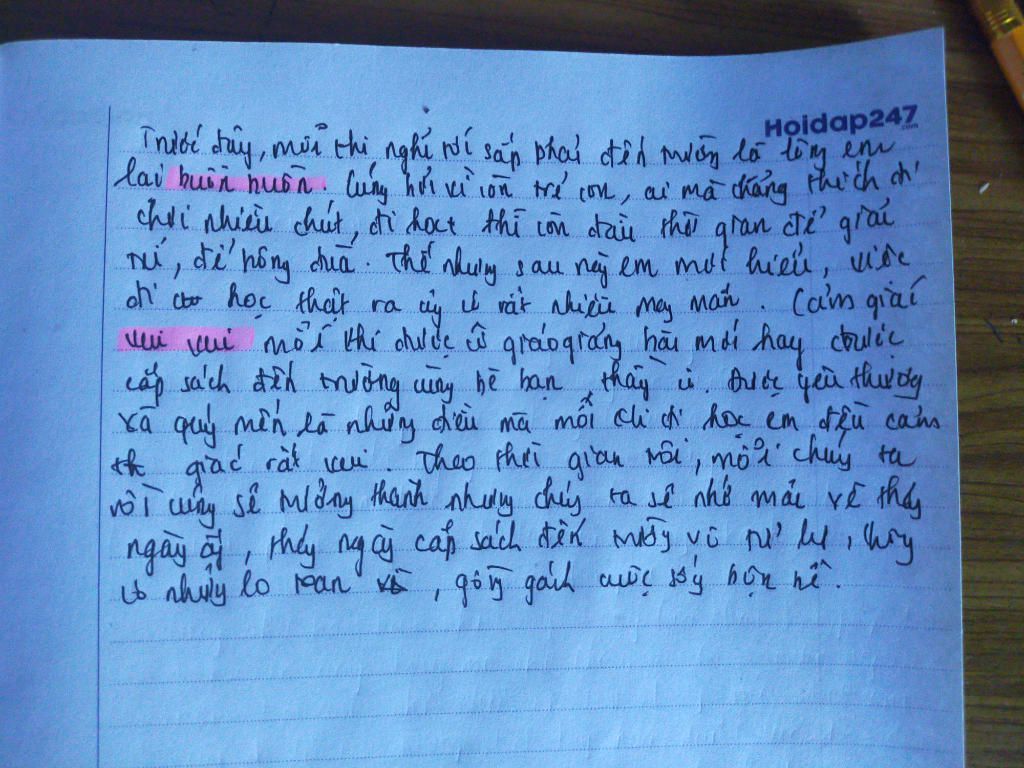 Hoidap247
.com
Trước đây, mỗi khi nghĩ tới sắp phải đến trường là lòng em
lại buồn buồn. Cũng bởi vì còn trẻ con, ai mà chẳng thích đi
chơi nhiều chút, đi học thì còn đâu thời gian để giải
trí, để rông đùa. Thế nhưng sau này em mới hiểu, việc
đi học thật ra ấy có rất nhiều may mắn. Cảm giác
vui vui mỗi khi được cô giáo giảng bài mới hay được
cắp sách đến trường cùng bè bạn thầy cô. Được yêu thương
và quý mến là những điều mà mỗi khi đi học em đều cảm
th giác rất vui. Theo thời gian trôi, mỗi chúng ta
rồi cũng sẽ trưởng thành nhưng chúng ta sẽ nhớ mãi về tháng
ngày ấy, tháng ngày cắp sách đến trường vô tư lự, không
có những lo toan, gồng gánh cuộc sống bộn bề.